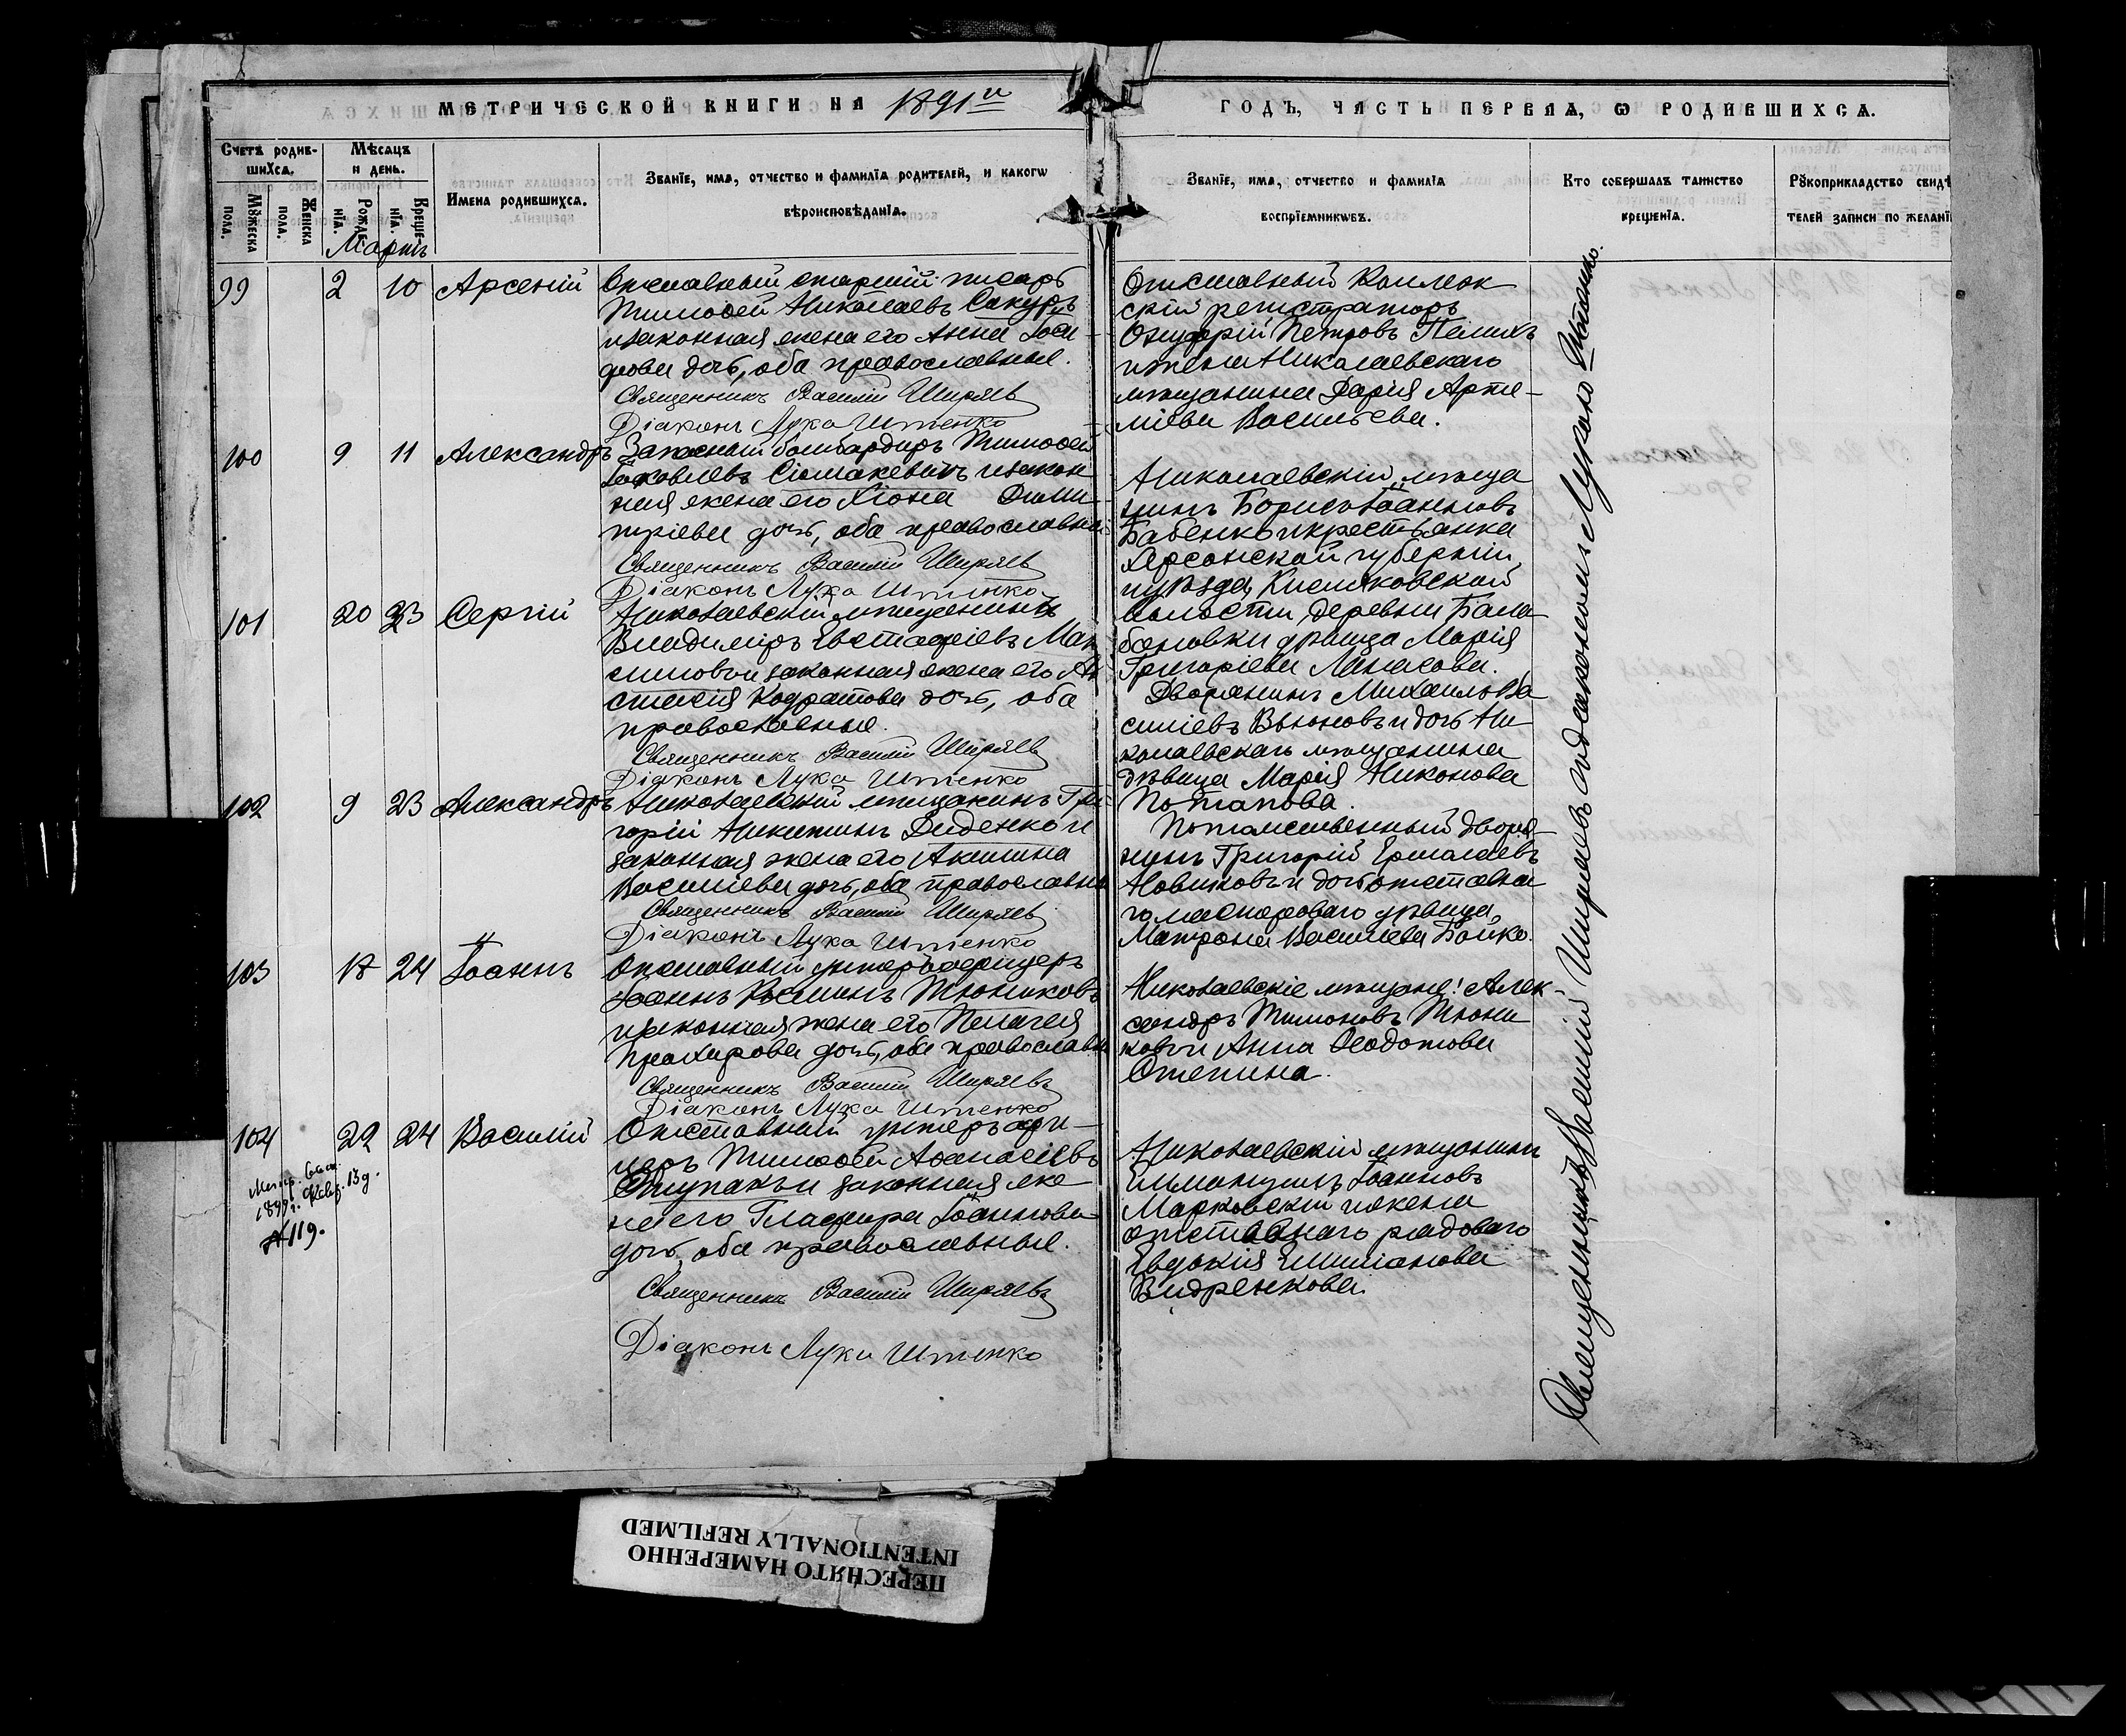 МЕТРИЧЕСКОЙ КНИГИ НА 1891й
ГОДЪ, ЧАСТЬ ПЕРВАЯ, Ѡ РОДИВШИХСѦ.
Счетъ родив-
шихсѧ.
Мѣсѧцъ
и день.
Мꙋжеска
пола.
Женска
пола.
Рожде-
нїѧ.
Креще-
нїѧ.
Имена родившихсѧ.
Званїе, имѧ, отчество и фамилїѧ родителей, и какогѡ
вѣроисповѣданїѧ.
Званїе, имѧ, отчество и фамилїѧ
воспрїемникѡвъ.
Кто совершалъ таинство
крещенїѧ.
Рꙋкоприкладство свидѣ
телей записи по желанї
Мартъ
99 2 10 Арсеній
Отставный старшій писарь
Тимоѳей Николаевъ Сакунъ
и законная жена его Анна Іоси-
фова дочь, оба православные.
Священникъ Василій Ширяевъ
Діаконъ Лука Штенко
Отставный Коллеж
скій регистраторъ
Онуфрій Петровъ
и жена Николаевскаго
мѣщанина Дарія Арте-
міева Васильева.
100 9 11 Александръ
Запасный бомбардиръ Тимоѳей
Іаковлевъ и закон
ная жена его Дими-
тріева дочь, оба православны
Священникъ Василій Ширяевъ
Діаконъ Лука Штенко
Николаевскій мѣща
нинъ Борисъ Іоанновъ
Бабенко и крестьянка
Херсонской губерніи
и уѣзда, Кисляковской
волости, деревни Бала
бановки дѣвица Марія
Григоріева Ланасова.
101 20 23 Сергій
Николаевскій мѣщанинъ
Владиміръ Евстафіевъ Мак
симовъ и законная жена его Ан
стасія Кодратова дочь, оба
православные.
Священникъ Василій Ширяевъ
Діаконъ Лука Штенко
Дворянинъ Михаилъ Ва
силіевъ Вьюновъ и дочь Ни
колаевскаго мѣщанина
дѣвица Марія Никонова
Потапова.
102 9 23 Александръ
Николаевскій мѣщанинъ Гри
горій Никитинъ Диденко и
законная жена его Акилина
Василіева дочь, оба православны
Священникъ Василій Ширяевъ
Діаконъ Лука Штенко
Потомственный дворя-
нинъ Григорій Ермолаевъ
Новиковъ и дочь отставна
го мастероваго дѣвица
Матрона Василіева Бойко.
103 18 24 Іоаннъ
Отставный унтеръ офицеръ
Іоаннъ Косминъ Тюниковъ
и законная жена его Пелагея
Прохирова дочь, оба православны
Священникъ Василій Ширяевъ
Діаконъ Лука Штенко
Николаевскіе мѣщане: Алек-
сандръ Тимоновъ Тюни
ковъ и Анна Ѳеодотова
Степина.
104 22 24 Василій
Отставный унтеръ офи-
церъ Тимоѳей Аѳанасіевъ
Ступакъ и законная же
на его Гласфира Іоаннова
дочь, оба православные.
Священникъ Василій Ширяевъ
Діаконъ Лука Штенко
Николаевскій мѣщанинъ
Еммануилъ Іоанновъ
Марковскій и жена
отставнаго рядоваго
Евдокія Емиліанова
Видренкова.
1899 г. Февр. 13 д.
№ 119.
Священникъ Василій Ширяевъ съ діакономъ Лукою Штенко.
ПЕРЕСНЯТО НАМЕРЕННО
INTENTIONALLY REFILMED